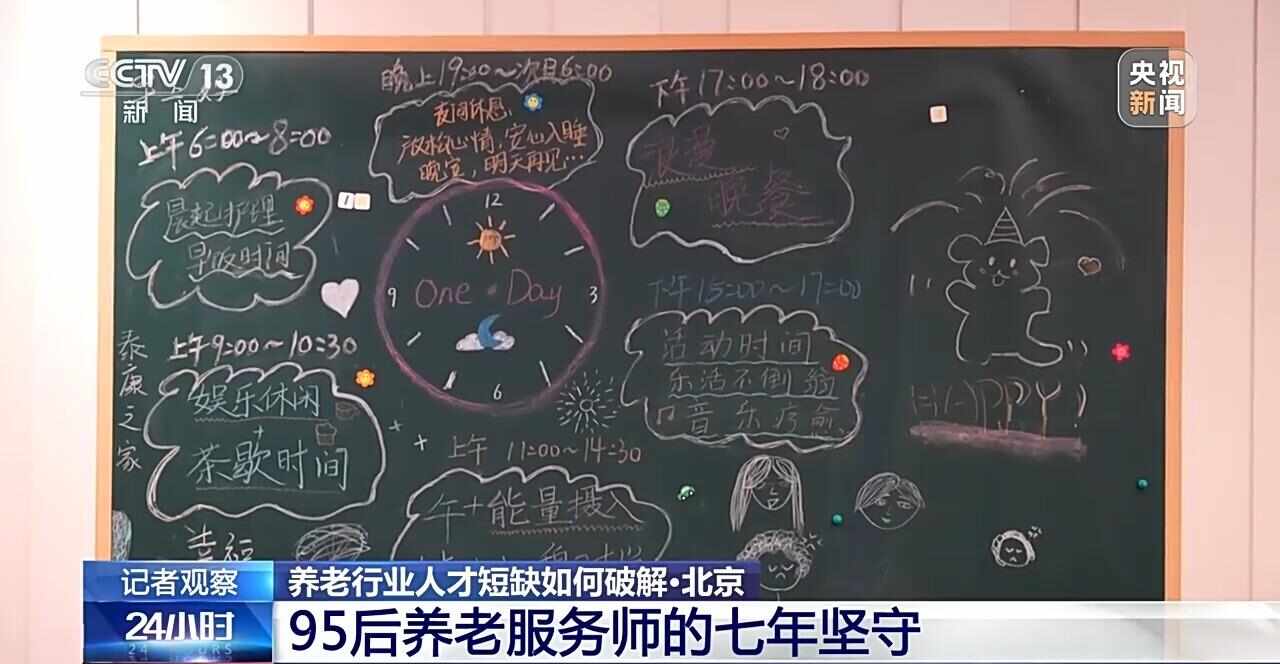 CCTV 13
新闻
央视
新闻
晚上19:00～次日6:00
夜间休息:
放松心情,安心入睡
晚宜,明天再见…
下午17:00～18:00
浪漫
晚餐
上午6:00～8:00
晨起护理
早饭时间
12
3
6
9
One Day
下午15:00～17:00
活动时间
乐活不倒翁
音乐疗愈
上午9:00～10:30
娱乐休闲
+
茶歇时间
泰康之家
上午 11:00～14:30
午+能量摄入
幸福
HAPPY!
记者观察
24小时
养老行业人才短缺如何破解·北京
95后养老服务师的七年坚守